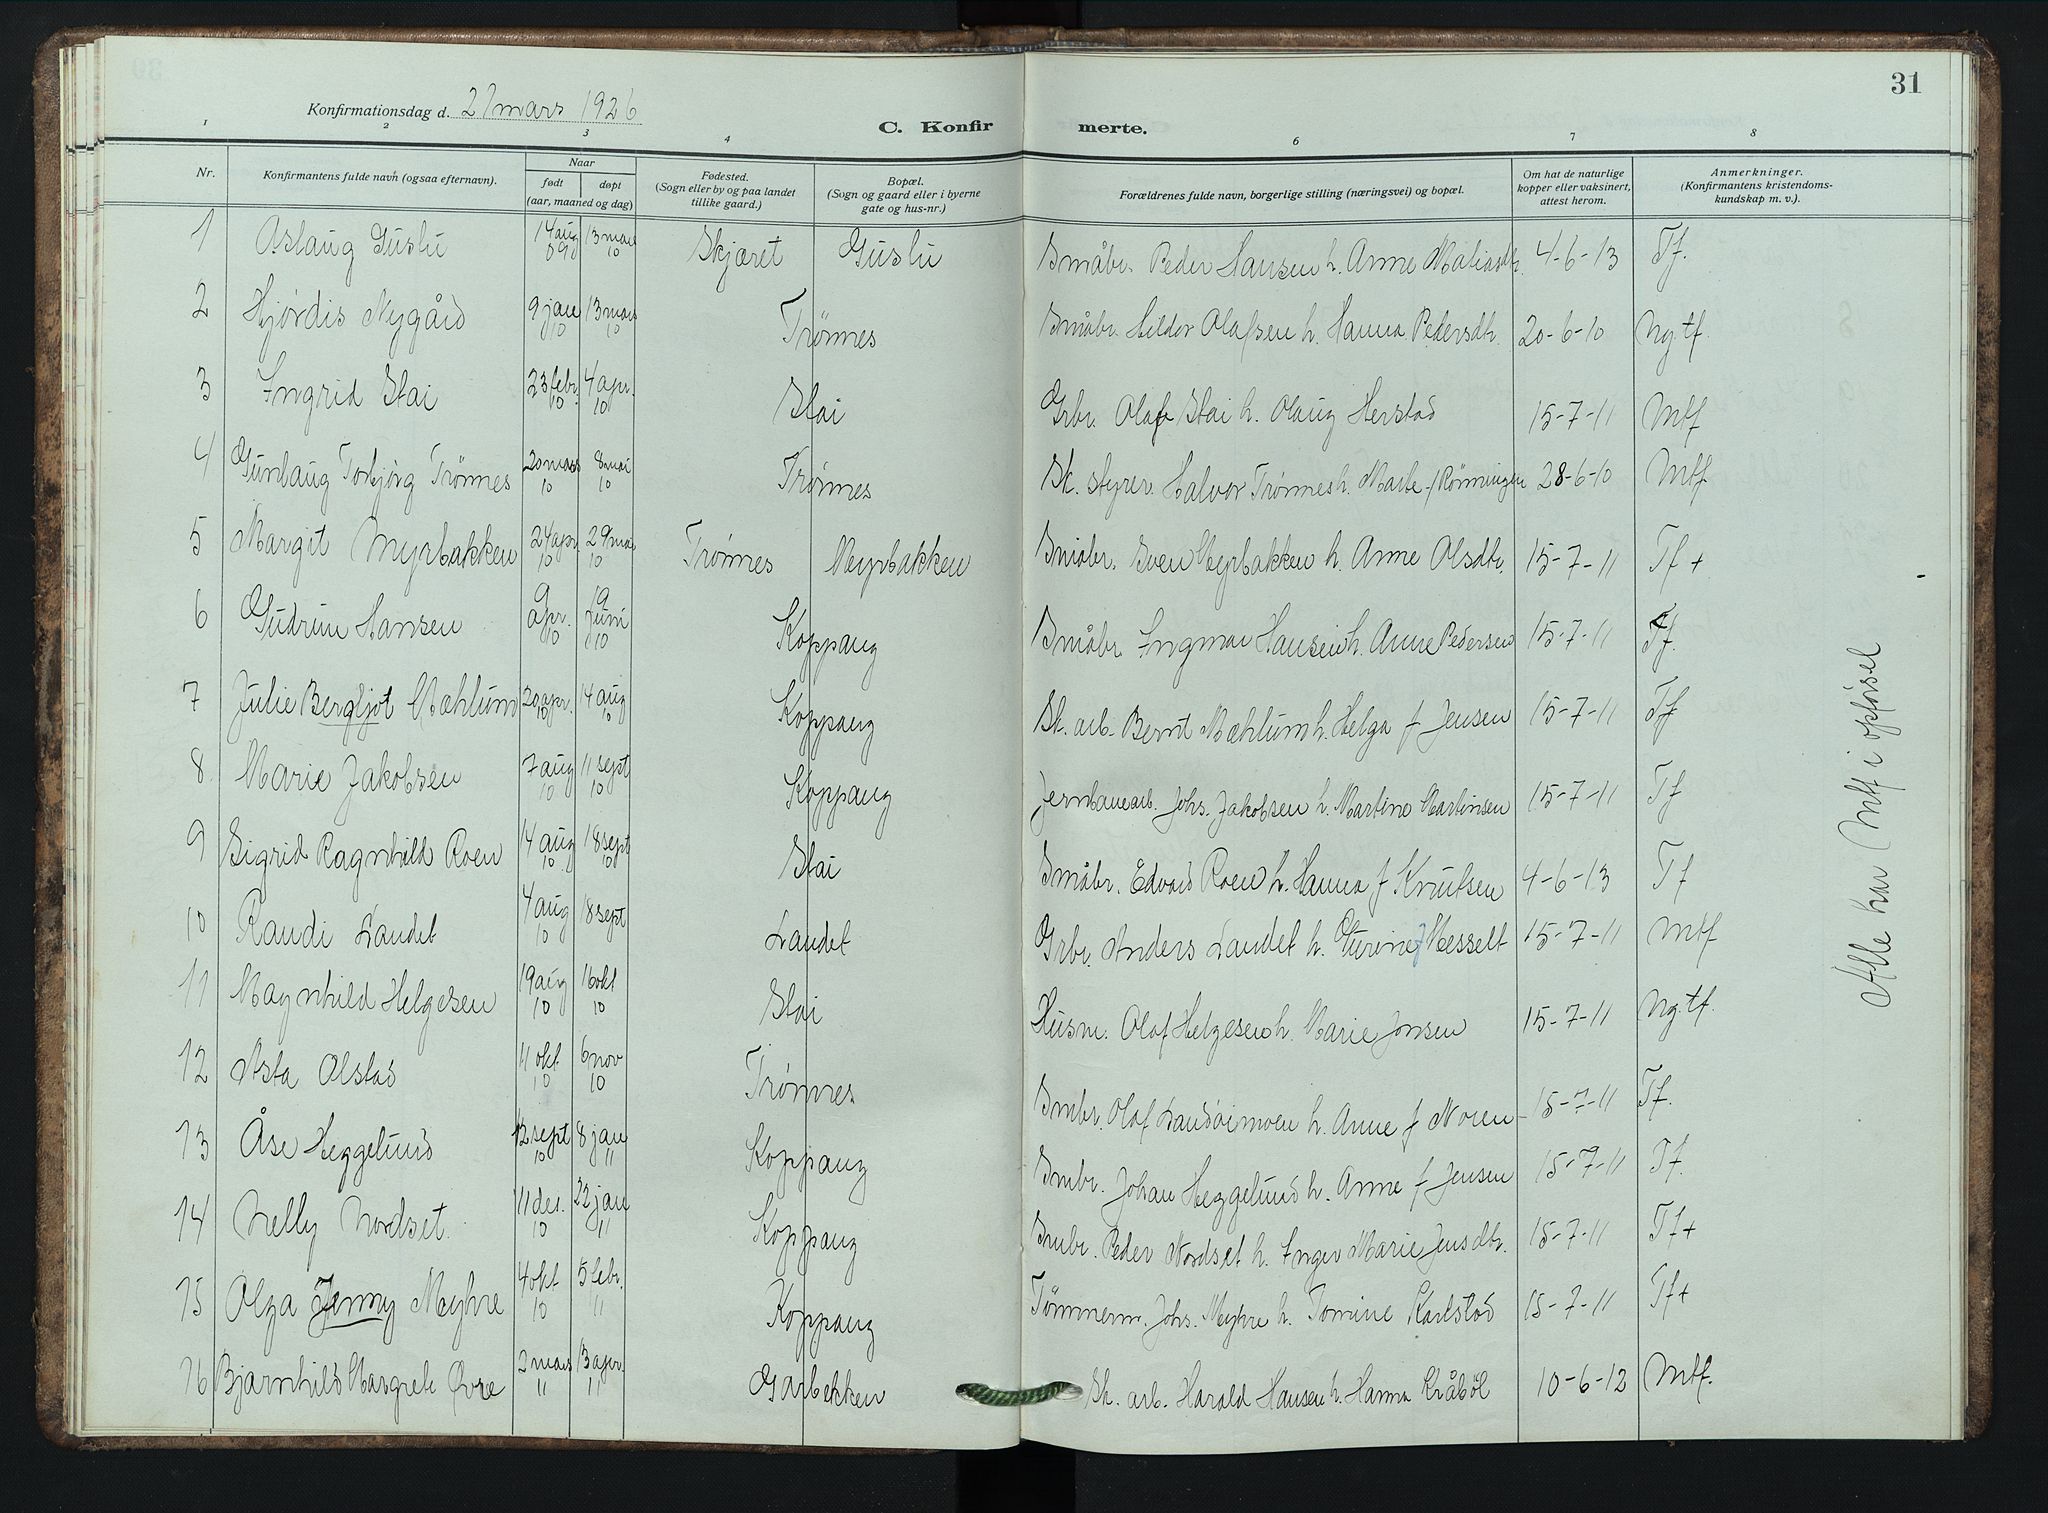 31
Konfirmationsdag d. 27 mars 1926
C. Konfirmerte.
1 2 3 4 6 7 8
Nr. | Konfirmantens fulde navn (ogsaa efternavn). | Naar født | døpt (aar, maaned og dag) | Fødested. (Sogn eller by og paa landet tillike gaard.) | Bopæl. (Sogn og gaard eller i byerne gate og hus-nr.) | Forældrenes fulde navn, borgerlige stilling (næringsvei) og bopæl. | Om hat de naturlige kopper eller vaksinert, attest herom. | Anmerkninger. (Konfirmantens kristendomskundskap m. v.).
1 Aslaug Guslu 14 aug 09 13 mars 10 Skjæret Guslu Småbr. Peder Hansen h. Anne Matiasdtr. 4-6-13 Tf.
2 Hjørdis Nygård 9 jan 10 13 mars 10 Trønnes Småbr. Hildor Olafsen h. Hanna Pedersdtr. 20-6-10 Ngtf.
3 Ingrid Stai 23 febr. 10 4 apr. 10 Stai Grbr. Olaf Stai h. Olaug Herstad 15-7-11 Mtf
4 Gunlaug Torbjörg Trönnes 20 mars 10 8 mai 10 Trønnes Sk. styrer. Halvor Trønnes h. Marte f Rønningen 28-6-10 Mtf
5 Margit Myrbakken 24 apr 10 29 mai 10 Trønnes Myrbakken Småbr. Sven Myrbakken h. Anne Olsdtr. 15-7-11 Tf +
6 Gudrun Hansen 9 apr. 10 19 juni 10 Koppang Småbr. Ingmar Hansen h. Anne Pedersen 15-7-11 Tf.
7 Julie Bergljot Mæhlum 20 apr. 10 14 aug 10 Koppang Sk. arb. Bernt Mæhlum h. Helga f Jensen 15-7-11 Tf
8. Marie Jakobsen 7 aug 10 11 sept 10 Koppang Jernbanearb. Johs. Jakobsen h. Martine Martinsen 15-7-11 Tf
9 Sigrid Ragnhild Roen 14 aug 10 18 sept 10 Stai Småbr. Edvard Roen h. Hanna f Knutsen 4-6-13 Tf
10 Randi Landet 4 aug 10 18 sept Landet Grbr. Anders Landet h. Turine f Messelt 15-7-11 Mtf
11 Magnhild Helgesen 19 aug 10 16 okt 10 Stai Husm. Olof Helgesen h. Marie Jonsen 15-7-11 Ng.tf.
12 Asta Olstad 11 okt 10 6 nov 10 Trønnes Småbr. Olof h. Anne f Noren 15-7-11 Tf.
13 Åse Heggelund 12 sept 10 8 jan 11 Koppang Smbr. Johan Heggelund h. Anne f Jensen 15-7-11 Tf.
14 Nelly Nordset. 11 des. 10 22 jan 11 Koppang Smbr. Peder Nordset h. Inger Marie Jensdtr. 15-7-11 Tf+
15 Olga Jenny Myhre 4 okt 10 5 febr. 11 Koppang Tømmerm. Johs. Myhre h. Tomine Karlstad 15-7-11 Tf+
16 Bjarnhild Margrete Øvre 2 mars 11 13 apr. 11 Garbekken Sk. arb. Harald Hansen h. Hanna Kråböl 10-6-12 Mtf.
Alle har Mtf i opførsel